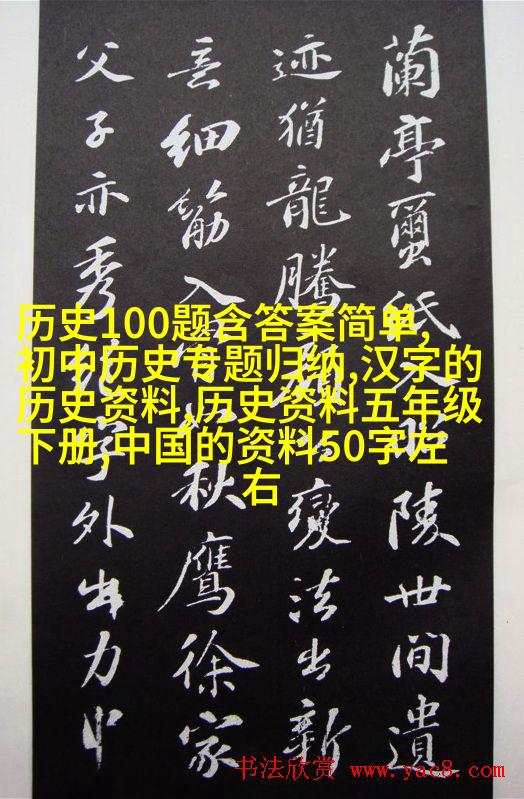 蘭亭蠒紙入昭陵世間遺
迹猶龍騰顏公變法出新
意細筋入骨如秋鷹徐家
父子亦秀絶字外出力中
历史100题含答案简单,
初中历史专题归纳,汉字的
历史资料,历史资料五年级
下册,中国的资料50字左
右
书法欣赏 www.yac8.com